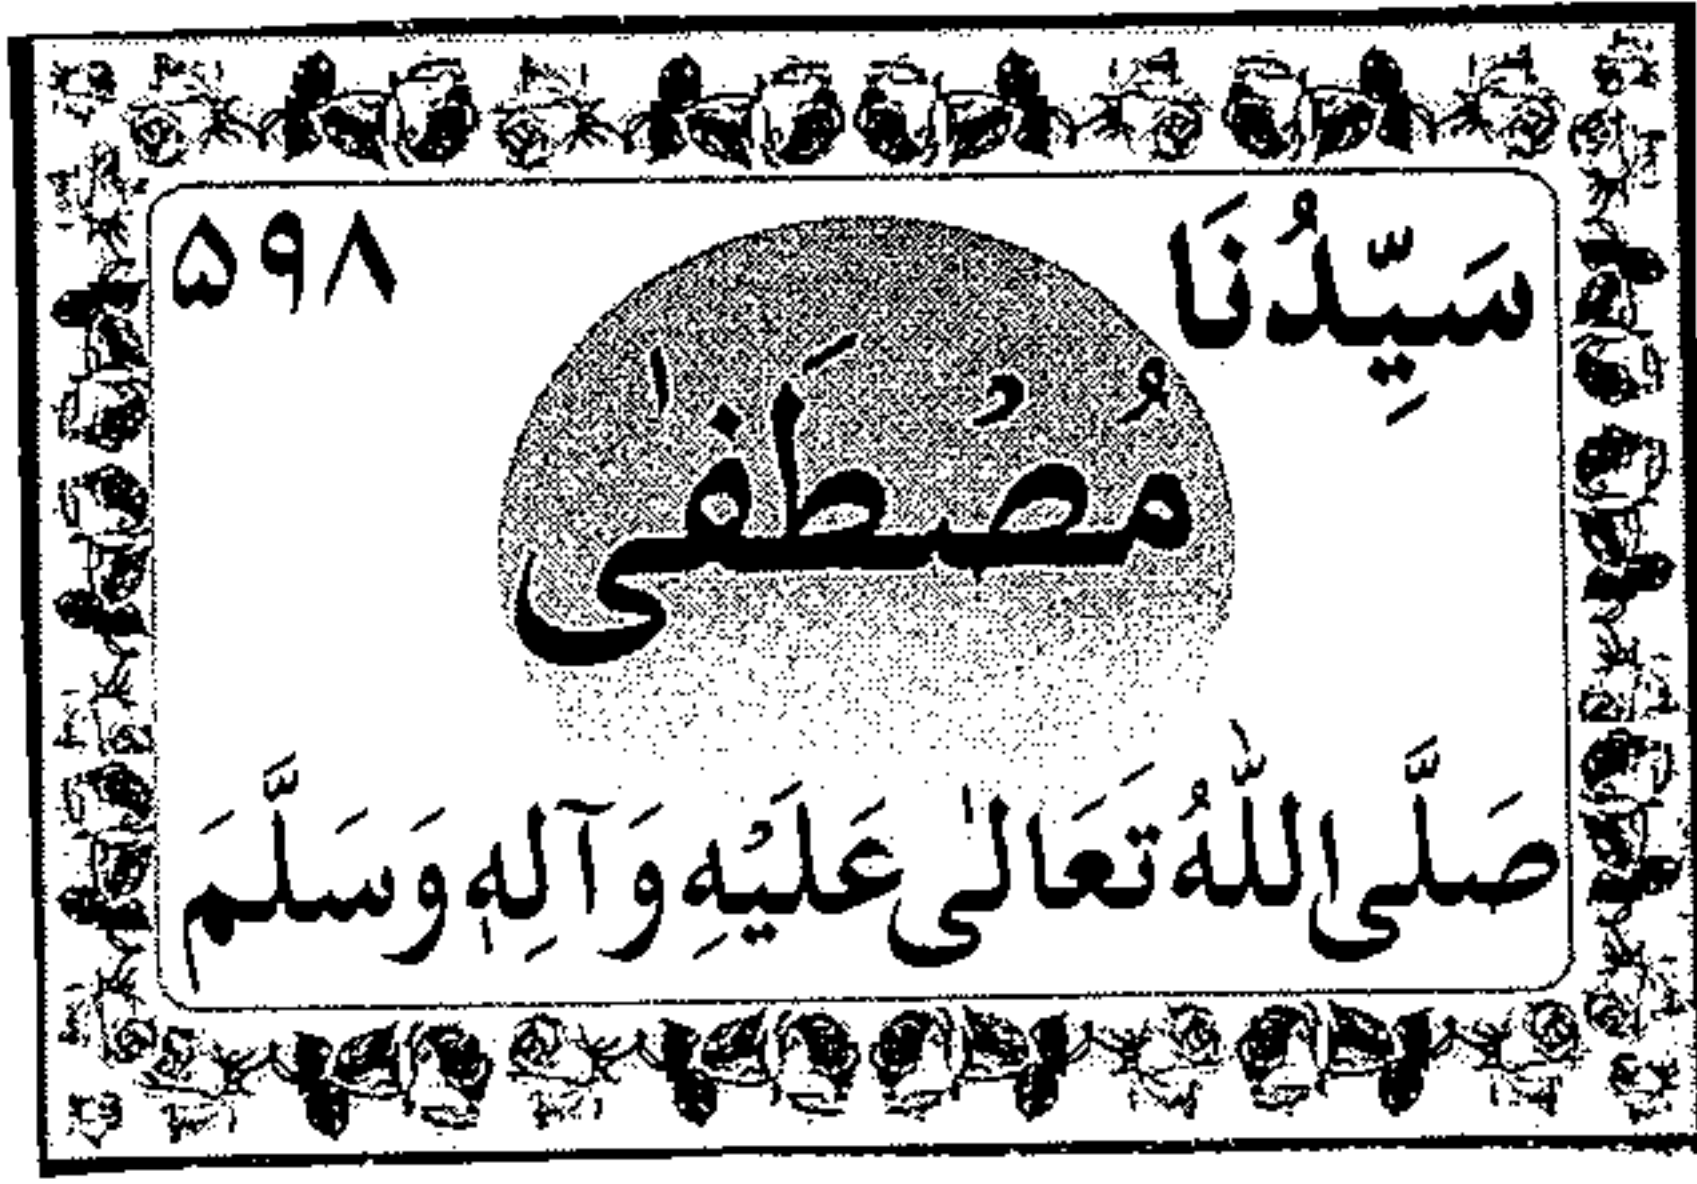 سَيِّدُنَا ۵۹۸
مُصْطَفٰى
صَلَّى اللّٰهُ تَعَالٰى عَلَيْهِ وَآلِهٖ وَسَلَّمَ